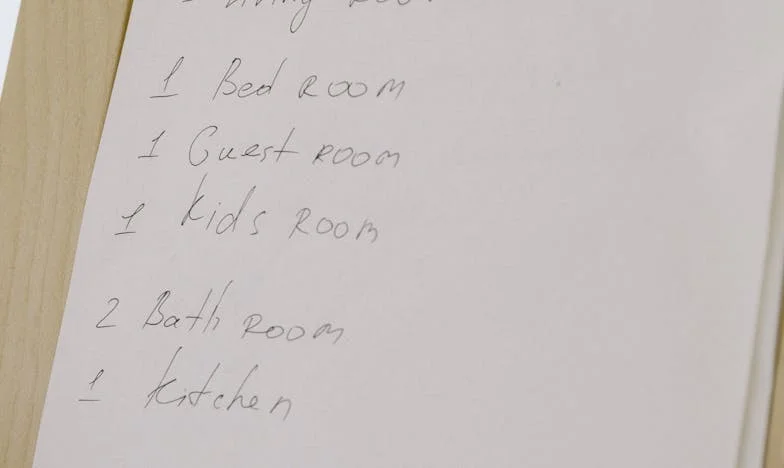 Living Room
1 Bed ROOM
1 Guest ROOM
1 Kids ROOM
2 Bath ROOM
1 Kitchen